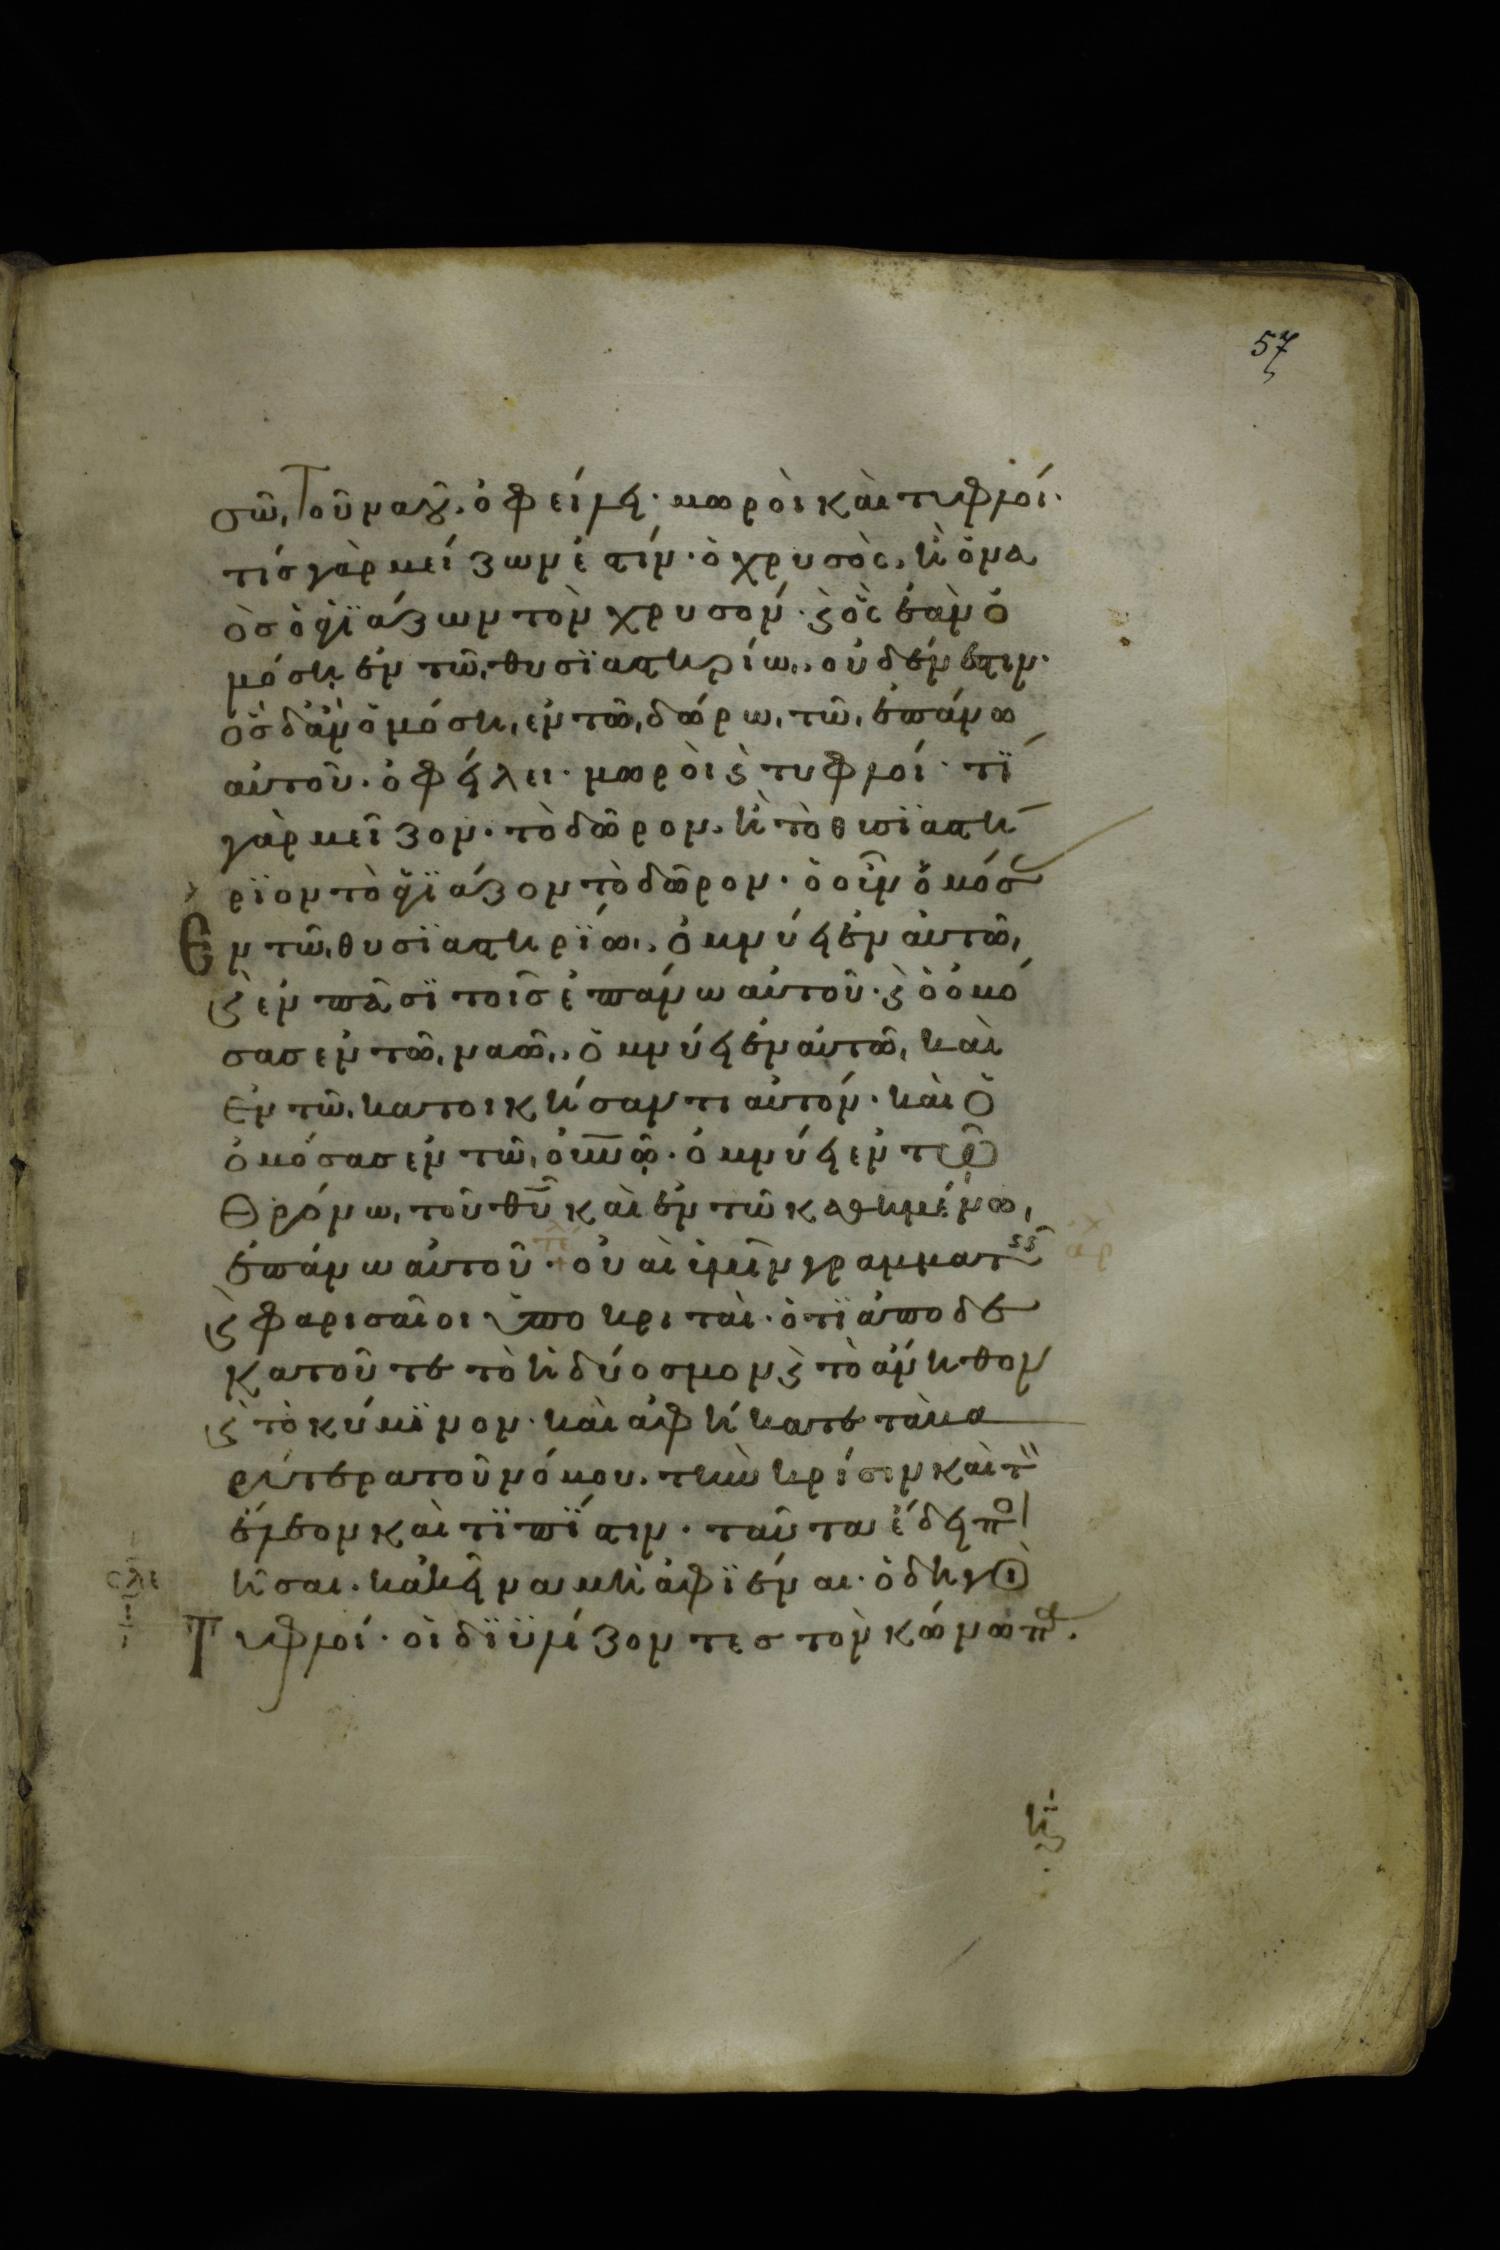 57
σῶ, τοῦ ναοῦ. ὀφείλει· μωροὶ καὶ τυφλοί·
τίσ γὰρ μείζων ἐστίν· ὁ χρυσὸς, ἢ ὁ να
ὸσ ὁ ἁγϊάζων τὸν χρυσόν· ϗ ὃς ἐὰν ὀ
μόση, ἐν τῶ, θυσϊαστηρίω,. οὐδέν ἐστιν·
ὃσ δἂν ὀμόση, ἐν τῶ, δώρω, τῶ, ἐπάνω
αὐτοῦ· ὀφήλει· μωροὶ ϗ τυφλοί· τί
γὰρ μεῖζον· τὸ δῶρον, ἢ τὸ θυσϊαστή
ρϊον τὸ ἁγϊάζον τὸ δῶρον· ὁ οὖν ὀμόσ
ἐν τῶ, θυσϊαστηρϊω,. ὀμνύει ἐν αὐτῶ,
ϗ ἐν πᾶσϊ τοῖσ ἐπάνω αὐτοῦ· ϗ ὁ ὀμό
σασ ἐν τῶ, ναῶ,. ὀμνύει ἐν αὐτῶ, καὶ
ἐν τῶ, κατοικήσαντι αὐτόν· καὶ ὁ
ὀμόσασ ἐν τῶ, ο͞υ͞ν͞ῶ· ὀμνύει ἐν τῶ
θρόνω, τοῦ θ͞υ καὶ ἐν τῶ καθημένω,
ἐπάνω αὐτοῦ· οὐαὶ ὑμῖν γραμματ
ϗ φαρισαῖοι ὑποκριταὶ· ὁτϊ ἀποδε
κατοῦτε τὸ ἡδύοσμον ϗ τὸ ἄνηθον
ϗ τὸ κύμϊνον· καὶ ἀφήκατε τὰ βα
ρύτερα τοῦ νόμου. τὴν κρίσιν καὶ τ
ἔλεον καὶ τῒ πίστιν· ταῦτα ἔδει πο
ῆσαι. κἀκεῖνα μὴ ἀφϊέναι· ὁδηγοὶ
τυφλοί· οἱ δϊϋλίζοντεσ τὸν κώνωπ.